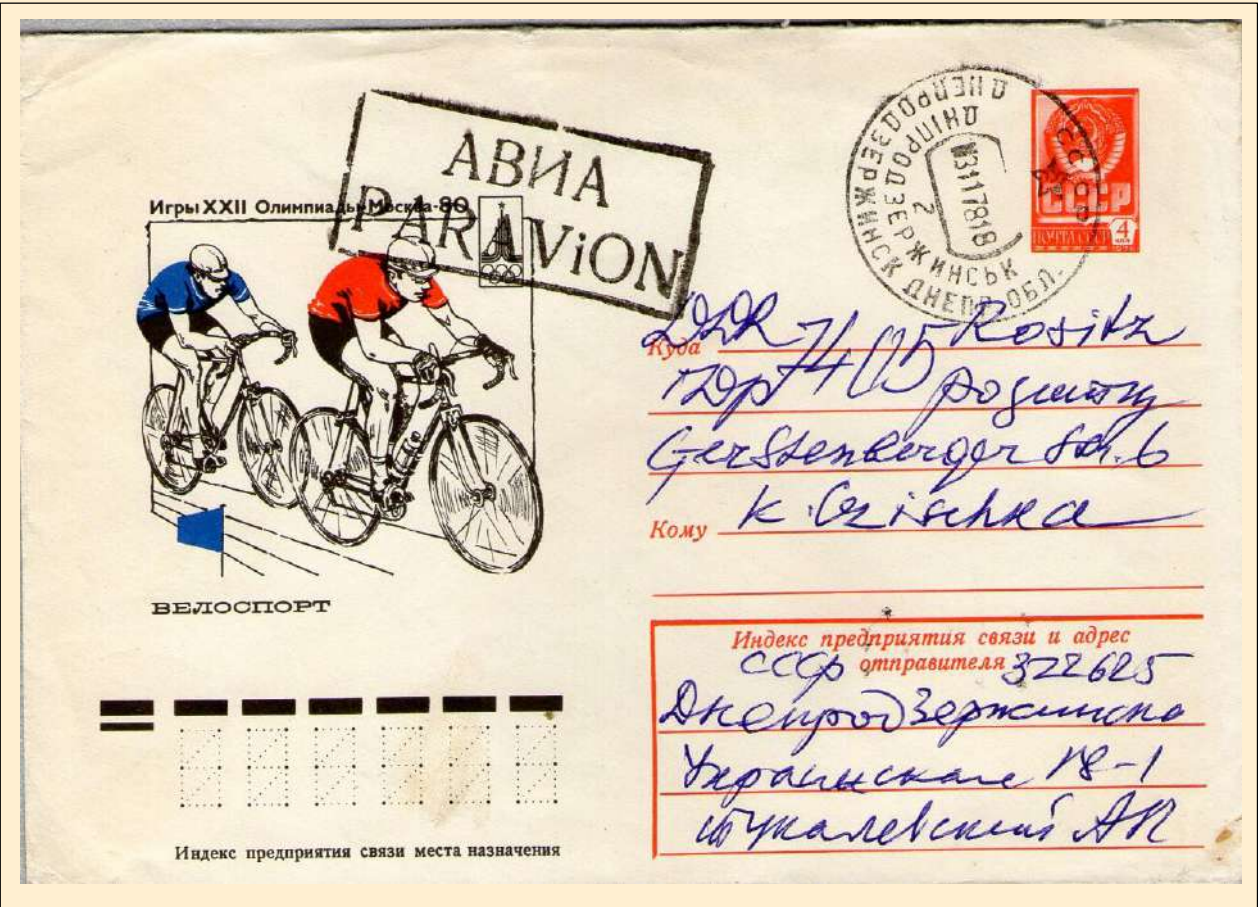 АВИА
PAR AViON
Игры XXII Олимпиады Москва-80
ВЕЛОСПОРТ
Индекс предприятия связи места назначения
ДНЕПРОДЗЕРЖИНСК ДНЕПР. ОБЛ.
ДНІПРОДЗЕРЖИНСЬК
2
СССР
ПОЧТА СССР
4
Куда DDR 7405 Rositz
ГДР 7405 Розитц
Gerstenberger Str. 6
Кому K. Czischka
Индекс предприятия связи и адрес
отправителя
СССР 322625
Днепродзержинск
Украинская 18-1
АП